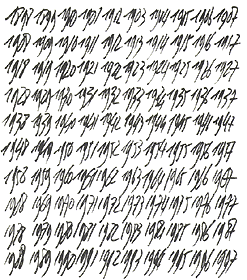 1898 1899 1900 1901 1902 1903 1904 1905 1906 1907
1908 1909 1910 1911 1912 1913 1914 1915 1916 1917
1918 1919 1920 1921 1922 1923 1924 1925 1926 1927
1928 1929 1930 1931 1932 1933 1934 1935 1936 1937
1938 1939 1940 1941 1942 1943 1944 1945 1946 1947
1948 1949 1950 1951 1952 1953 1954 1955 1956 1957
1958 1959 1960 1961 1962 1963 1964 1965 1966 1967
1968 1969 1970 1971 1972 1973 1974 1975 1976 1977
1978 1979 1980 1981 1982 1983 1984 1985 1986 1987
1988 1989 1990 1991 1992 1993 1994 1995 1996 1997